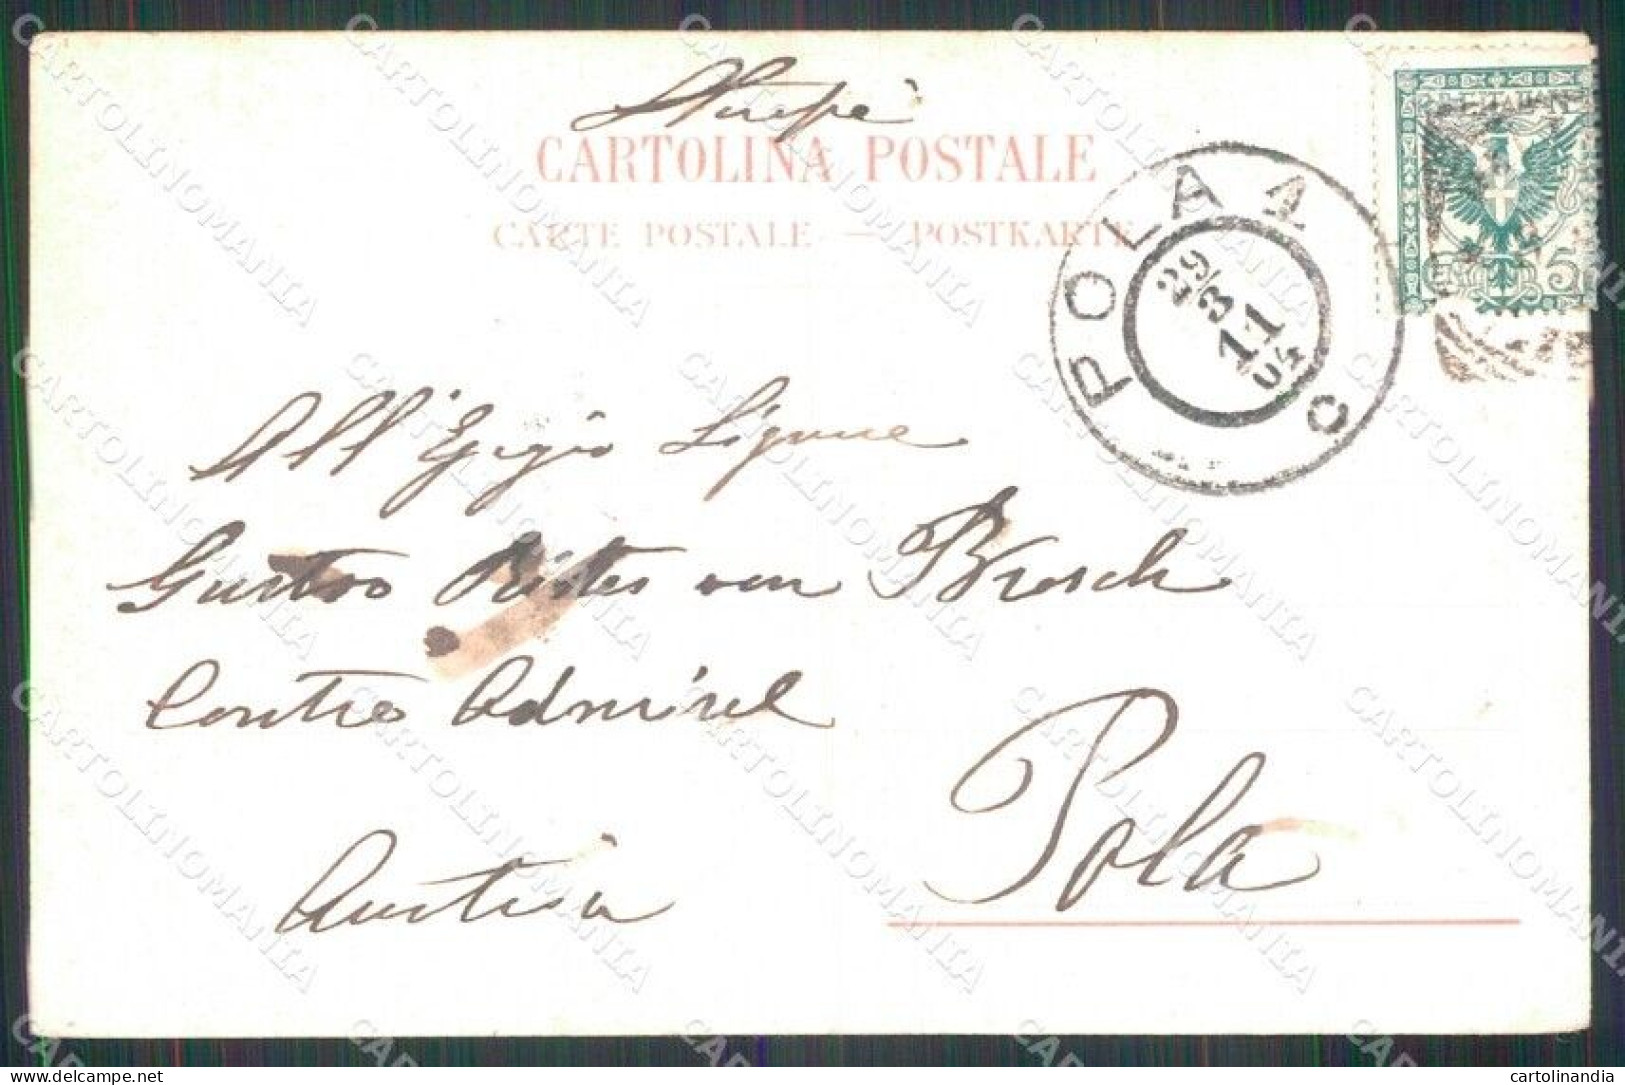 Stampe
CARTOLINA POSTALE
CARTE POSTALE — POSTKARTE
POLA 1
29/3
11
04
C
5
All'Egregio Signore
Gustavo Ritter von Brosch
Contro Admiral
Pola
Austria
CARTOLINOMANIA
cartolinandia